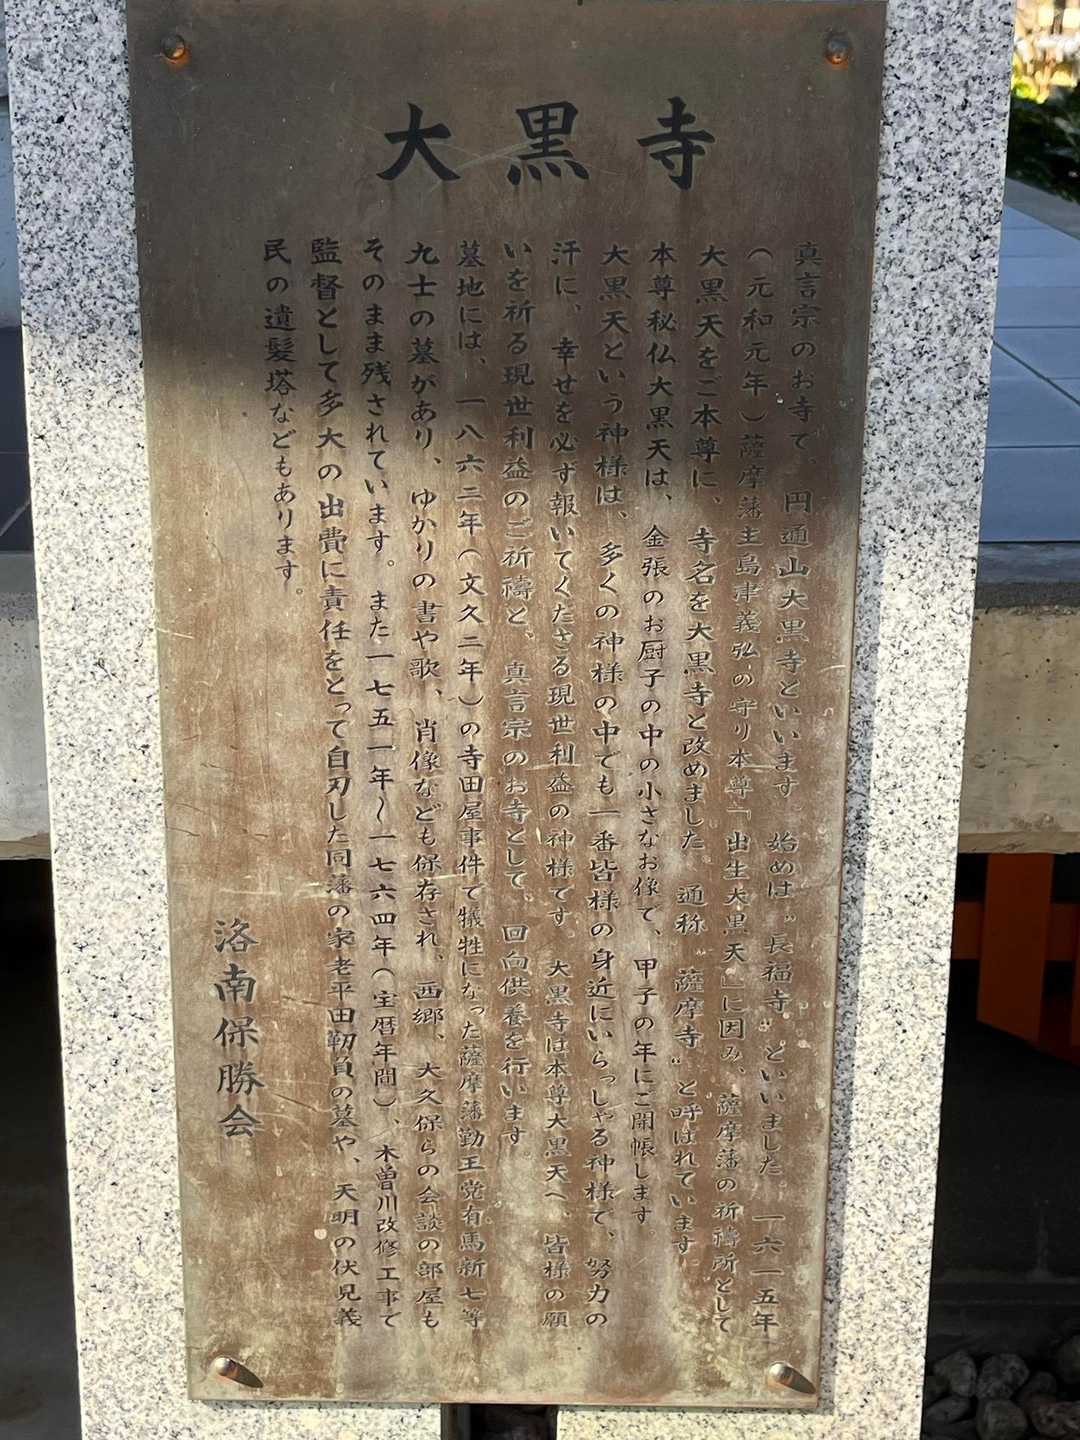 大黒寺
真言宗のお寺で、円通山大黒寺といいます 始めは〝長福寺〟といいました 一六一五年
(元和元年)薩摩藩主島津義弘の守り本尊「出生大黒天」に因み、薩摩藩の祈禱所として
大黒天をご本尊に、寺名を大黒寺と改めました 通称〝薩摩寺〟と呼ばれています
本尊秘仏大黒天は、金張のお厨子の中の小さなお像で、甲子の年にご開帳します
大黒天という神様は、多くの神様の中でも一番皆様の身近にいらっしゃる神様で、努力の
汗に、幸せを必ず報いてくださる現世利益の神様です 大黒寺は本尊大黒天へ、皆様の願
いを祈る現世利益のご祈禱と、真言宗のお寺として、回向供養を行います。
墓地には、一八六二年(文久二年)の寺田屋事件で犠牲になった薩摩藩勤王党有馬新七等
九士の墓があり、ゆかりの書や歌、肖像なども保存され、西郷、大久保らの会談の部屋も
そのまま残されています。また一七五一年〜一七六四年(宝暦年間)、木曽川改修工事で
監督として多大の出費に責任をとって自刃した同藩の家老平田靱負の墓や、天明の伏見義
民の遺髪塔などもあります。
洛南保勝会